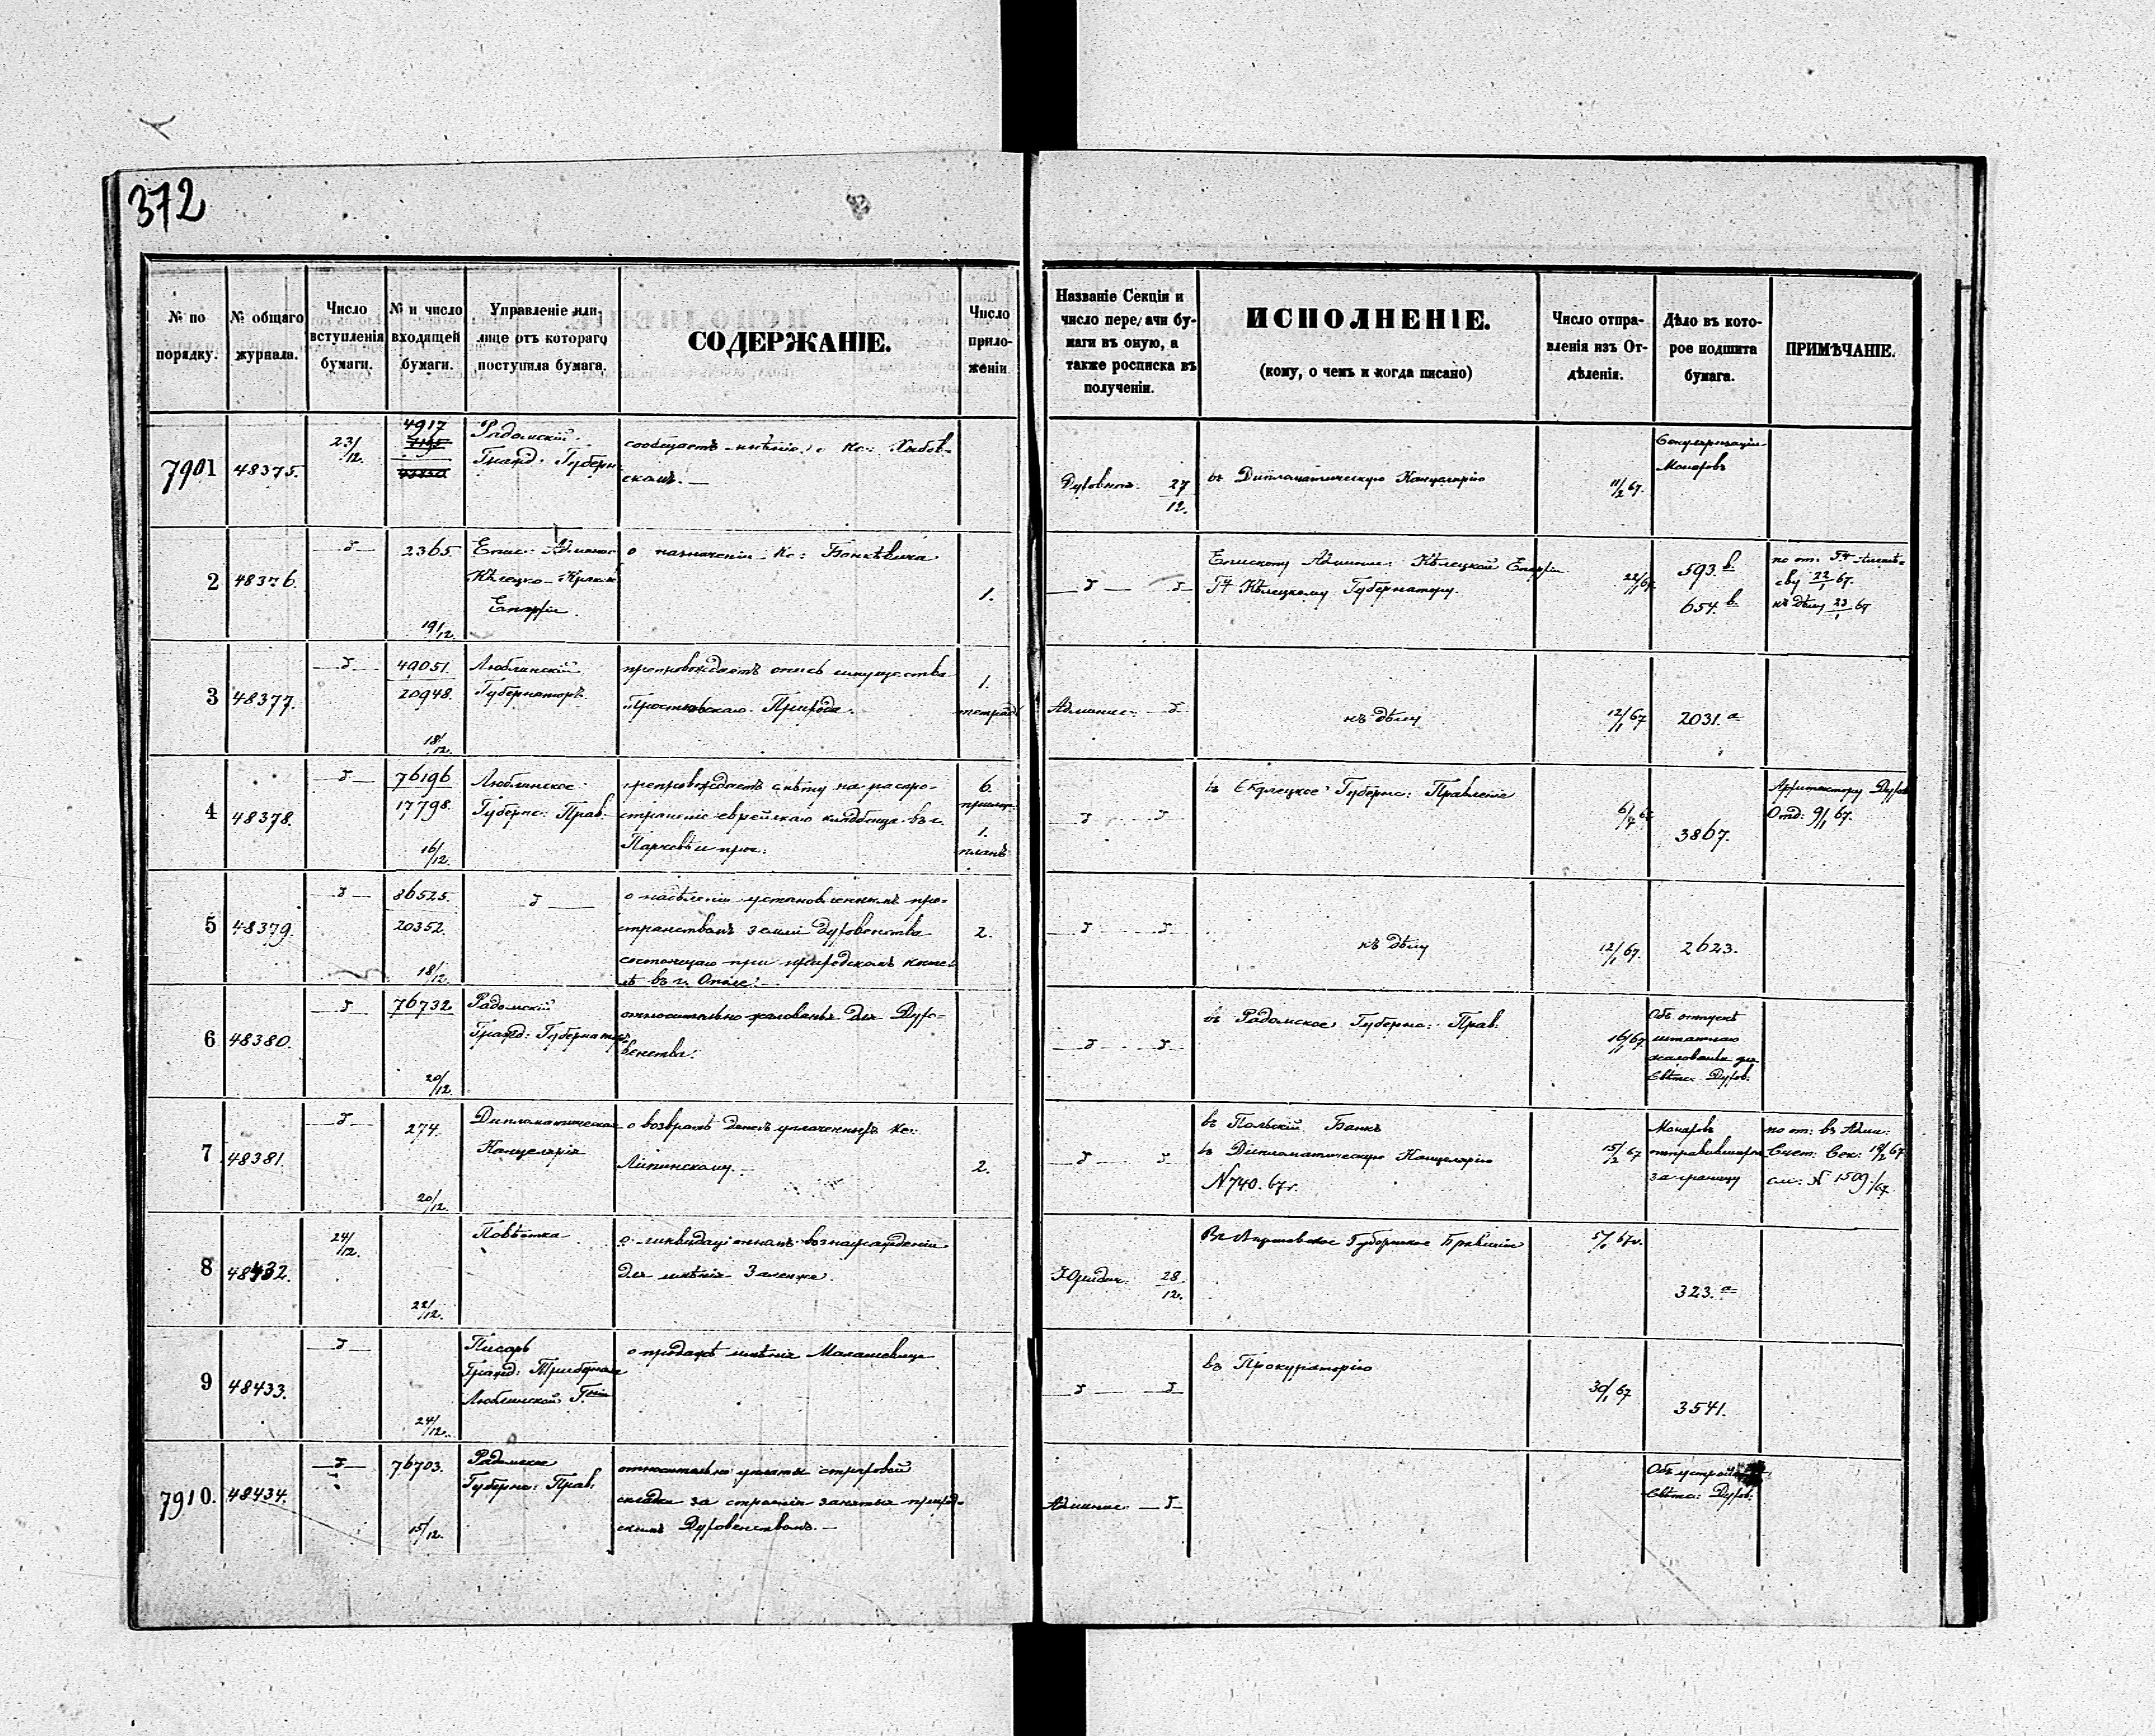 372
№ по порядку.
№ общаго журнала.
Число вступленія бумаги.
№ и число входящей бумаги.
Управленіе или лице отъ котораго поступила бумага.
СОДЕРЖАНІЕ.
Число приложеній
Названіе Секціи и число передачи бумаги въ оную, а также росписка въ полученіи.
ИСПОЛНЕНІЕ.
(кому, о чемъ и когда писано)
Число отправленія изъ Отдѣленія.
Дѣло въ которое подшита бумага.
ПРИМѢЧАНІЕ.
7901 48375. 23/12. 4917
Радомскій
Гражд. Губерн.
сообщаетъ мнѣніе о Кс:
скомъ.—
Духовная. 27/12.
въ Дипломатическую Канцелярію
11/2 67.
Монаховъ
2 48376. 2365. 19/12.
Епис: Админис
Кѣлецко-Краков
Епархіи.
о назначеніи Кс: Бонкевича
1.
Епископу Админис: Кѣлецкой Епархіи
Гну Кѣлецкому Губернатору.
22/67.
593.в
654.в
къ дѣлу 23/1 67
3 48377. 49051. 20948. 18/12.
Люблинскій
Губернаторъ.
препровождаетъ опись имущества
Прихода.
1.
тетрадь
Админис:
къ дѣлу
12/1 67
2031.а
4 48378. 76196 17798. 16/12.
Люблинское
Губернс: Прав:
препровождаетъ смѣту на распро-
страненіе еврейскаго кладбища въ г.
Парчевѣ и проч:
6.
1.
планъ
въ Сѣдлецкое Губернс: Правленіе
3867.
Архитектору Духов
Отд: 9/1 67.
5 48379. 86525. 20352. 18/12.
о надѣленіи установленнымъ про-
странствомъ земли Духовенства
состоящаго при приходскомъ косте-
лѣ въ г. Ополе.
2.
къ дѣлу
12/1 67.
2623.
6 48380. 76732. 20/12.
Радомскій
Гражд: Губернаторъ
относительно жалованья для Духо-
венства.
въ Радомское Губернс: Прав:
16/1 67.
Объ отпускѣ
штатнаго
жалованья для
Свѣтс: Духов.
7 48381. 274. 20/12.
Дипломатическая
Канцелярія
о возвратѣ денегъ уплаченныхъ Кс:
Липинскому.—
2.
въ Польскій Банкъ
въ Дипломатическую Канцелярію
N 740. 67 г.
15/2 67
Монаховъ
отправившихся
за границу
по от: въ Адми:
Счет: Сек: 19/2 67
см: N 1509/67
8 48432. 24/12. 22/12.
Повѣстка
о ликвидаціонномъ вознагражденіи
для имѣнія Заленже.
Юридич: 28/12.
Губернское Правленіе
323.а
9 48433. 24/12.
Писарь
Гражд: Трибунала
Люблинской Гніи
о продажѣ имѣнія Малашевице
въ Прокураторію
30/1 67
3541.
7910. 48434. 76703. 15/12.
Радомское
Губернс: Прав:
относительно уплаты страховой
складки за строенія занятыя приход-
скимъ Духовенствомъ.—
Админис:
Свѣтс: Духов: